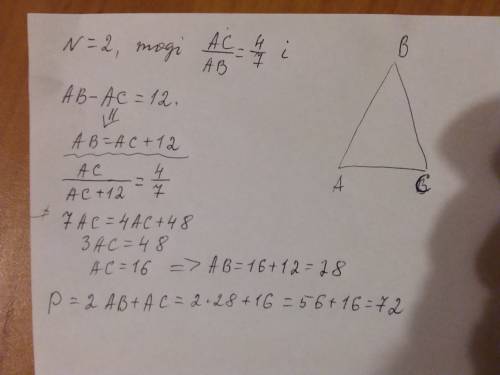 N=2, тоді AC/AB = 4/7 і
AB-AC=12.
⇓
AB=AC+12
AC/(AC+12) = 4/7
7AC=4AC+48
3AC=48
AC=16 => AB=16+12=28
P=2AB+AC=2·28+16=56+16=72
B
A
C